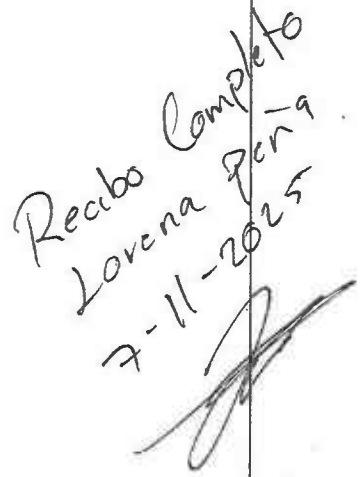 Recibo Completo
Lorena Peña
7-11-2025